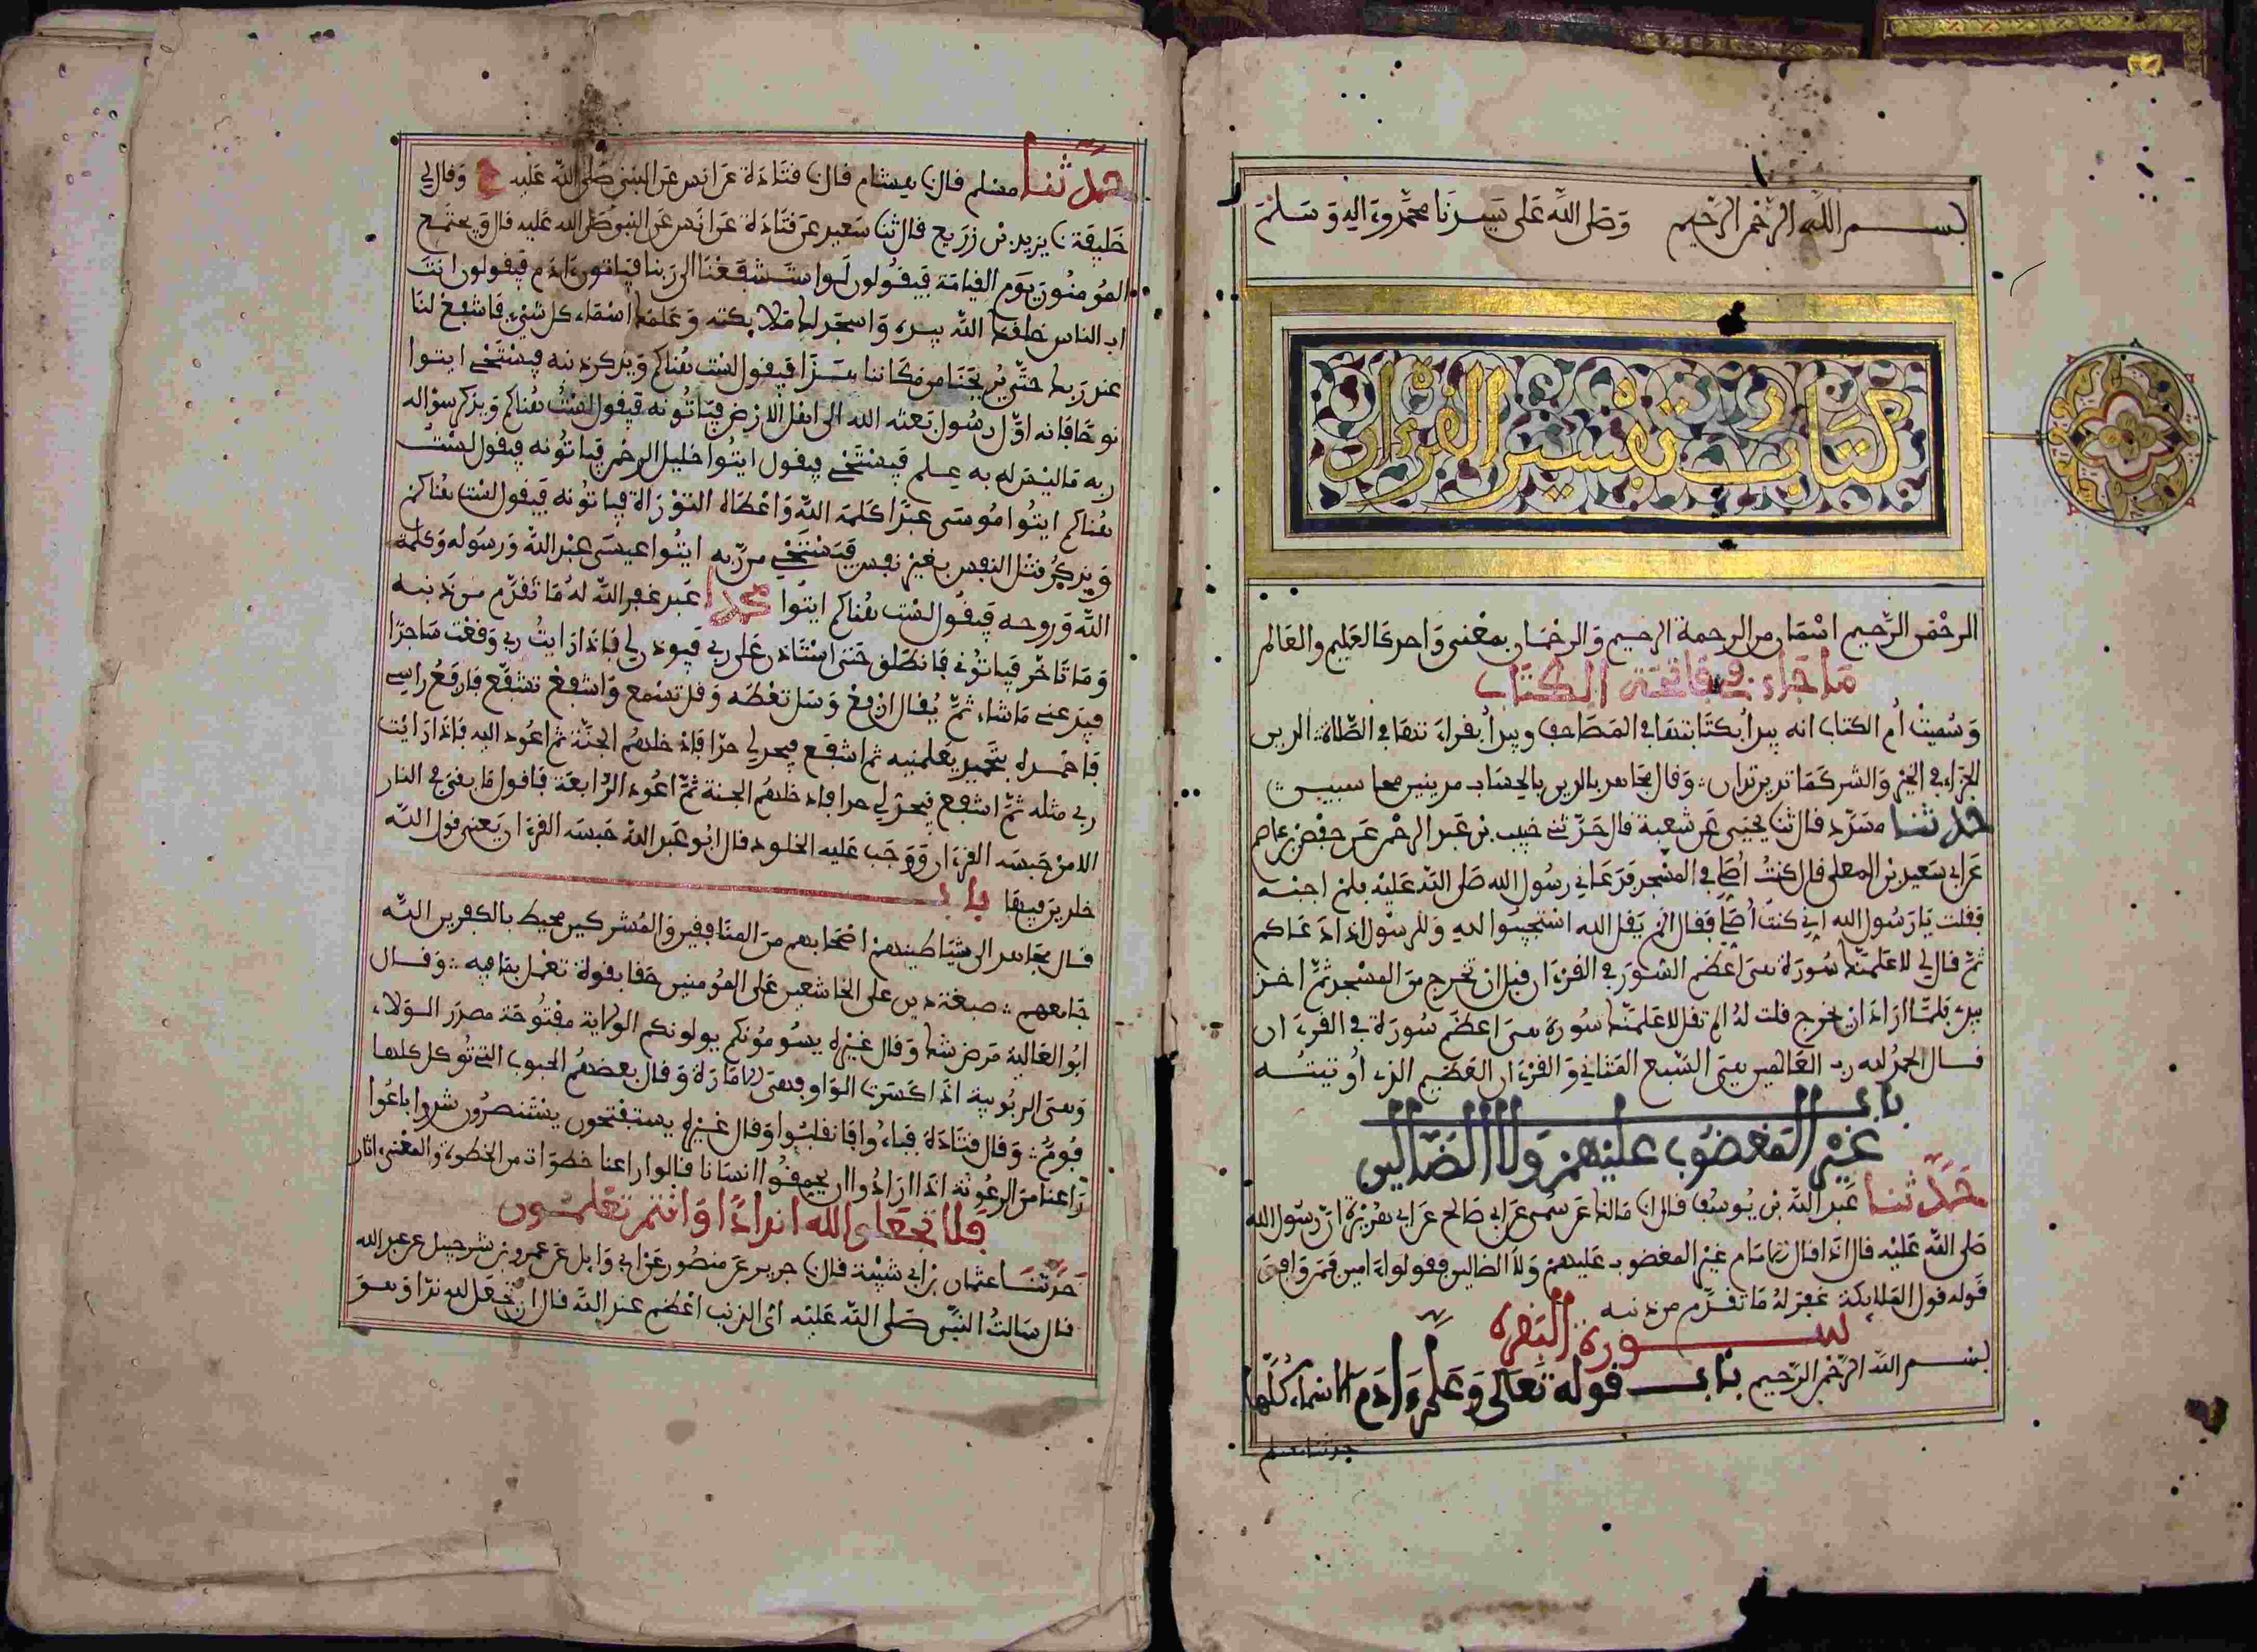 بسم الله الرحمن الرحيم وصلى الله على سيدنا محمد وءاله وسلم
كتاب تفسير القرءان
الرحمن الرحيم اسمان من الرحمة الرحيم والرحمان بمعنى واحد كالعليم والعالم
ما جاء في فاتحة الكتاب
وسميت أم الكتاب انه يبدأ بكتابتها في المصاحف ويبدأ بقراءتها في الصلاة الدين
الجزاء في الخير والشر كما تدين تدان وقال مجاهد بالدين بالحساب مدينين محاسبين
حدثنا مسدد قال ثنا يحيى عن شعبة قال حدثني خبيب بن عبد الرحمن عن حفص بن عاصم
عن أبي سعيد بن المعلى قال كنت أصلي في المسجد فدعاني رسول الله صلى الله عليه فلم اجبه
فقلت يا رسول الله اني كنت أصلي فقال الم يقل الله استجيبوا لله وللرسول اذا دعاكم
ثم قال لي لاعلمنك سورة هي أعظم السور في القرءان قبل ان تخرج من المسجد ثم اخذ
بيدي فلما اراد ان يخرج قلت له الم تقل لاعلمنك سورة هي اعظم سورة في القرءان
قال الحمد لله رب العالمين هي السبع المثاني والقرءان العظيم الذي أوتيته
باب
غير المغضوب عليهم ولا الضالين
حدثنا عبد الله بن يوسف قال انا مالك عن سمي عن أبي صالح عن أبي هريرة ان رسول الله
صلى الله عليه قال اذا قال الامام غير المغضوب عليهم ولا الضالين فقولوا ءامين فمن وافق
قوله قول الملايكة غفر له ما تقدم من ذنبه
سورة البقرة
بسم الله الرحمن الرحيم باب قوله تعالى وعلم ءادم الاسماء كلها
حدثنا مسلم
حدثنا مسلم قال نا هشام قال نا قتادة عن انس عن النبي صلى الله عليه ح وقال لي
خليفة نا يزيد بن زريع قال ثنا سعيد عن قتادة عن انس عن النبي صلى الله عليه قال ويجتمع
المؤمنون يوم القيامة فيقولون لو استشفعنا الى ربنا فياتون ءادم فيقولون انت
اب الناس خلقك الله بيده واسجد لك ملايكته وعلمك اسماء كل شيء فاشفع لنا
عند ربك حتى يريحنا من مكاننا هذا فيقول لست هناكم ويذكر ذنبه فيستحي ايتوا
نوحا فانه اول رسول بعثه الله الى اهل الارض فياتونه فيقول لست هناكم ويذكر سؤاله
ربه ما ليس له به علم فيستحي فيقول ايتوا خليل الرحمن فياتونه فيقول لست
هناكم ايتوا موسى عبدا كلمه الله واعطاه التوراة فياتونه فيقول لست هناكم
ويذكر قتل النفس بغير نفس فيستحي من ربه ايتوا عيسى عبد الله ورسوله وكلمة
الله وروحه فيقول لست هناكم ايتوا محمدا عبد غفر الله له ما تقدم من ذنبه
وما تاخر فياتوني فانطلق حتى استاذن على ربي فيوذن لي فاذا رايت ربي وقعت ساجدا
فيدعني ما شاء ثم يقال ارفع وسل تعطه وقل تسمع واشفع تشفع فارفع راسي
فاحمده بتحميد يعلمنيه ثم اشفع فيحد لي حدا فادخلهم الجنة ثم اعود اليه فاذا رايت
ربي مثله ثم اشفع فيحد لي حدا فادخلهم الجنة ثم اعود الرابعة فاقول ما بقي في النار
الا من حبسه القرءان ووجب عليه الخلود قال ابو عبد الله حبسه القرءان يعني قول الله
خلدين فيها باب
قال مجاهد الى شياطينهم اصحابهم من المنافقين والمشركين محيط بالكفرين الله
جامعهم صبغة دين على الخاشعين على المؤمنين حقا بقوة تعمل بما فيه وقال
ابو العالية مرض شك وقال غيره يسومونكم يولونكم الولاية مفتوحة مصدر الولاء
وهي الربوبية اذا كسرت الواو فهي الامارة وقال بعضهم الحبوب التي توكل كلها
فوم وقال قتادة فباءوا فانقلبوا وقال غيره يستفتحون يستنصرون شروا باعوا
راعنا من الرعونة اذا ارادوا ان يحمقوا انسانا قالوا راعنا خطوات من الخطو والمعنى ءاثار
فلا تجعلوا لله اندادا وانتم تعلمون
حدثنا عثمان بن أبي شيبة قال نا جرير عن منصور عن أبي وايل عن عمرو بن شرحبيل عن عبد الله
قال سالت النبي صلى الله عليه اى الذنب اعظم عند الله قال ان تجعل لله ندا وهو